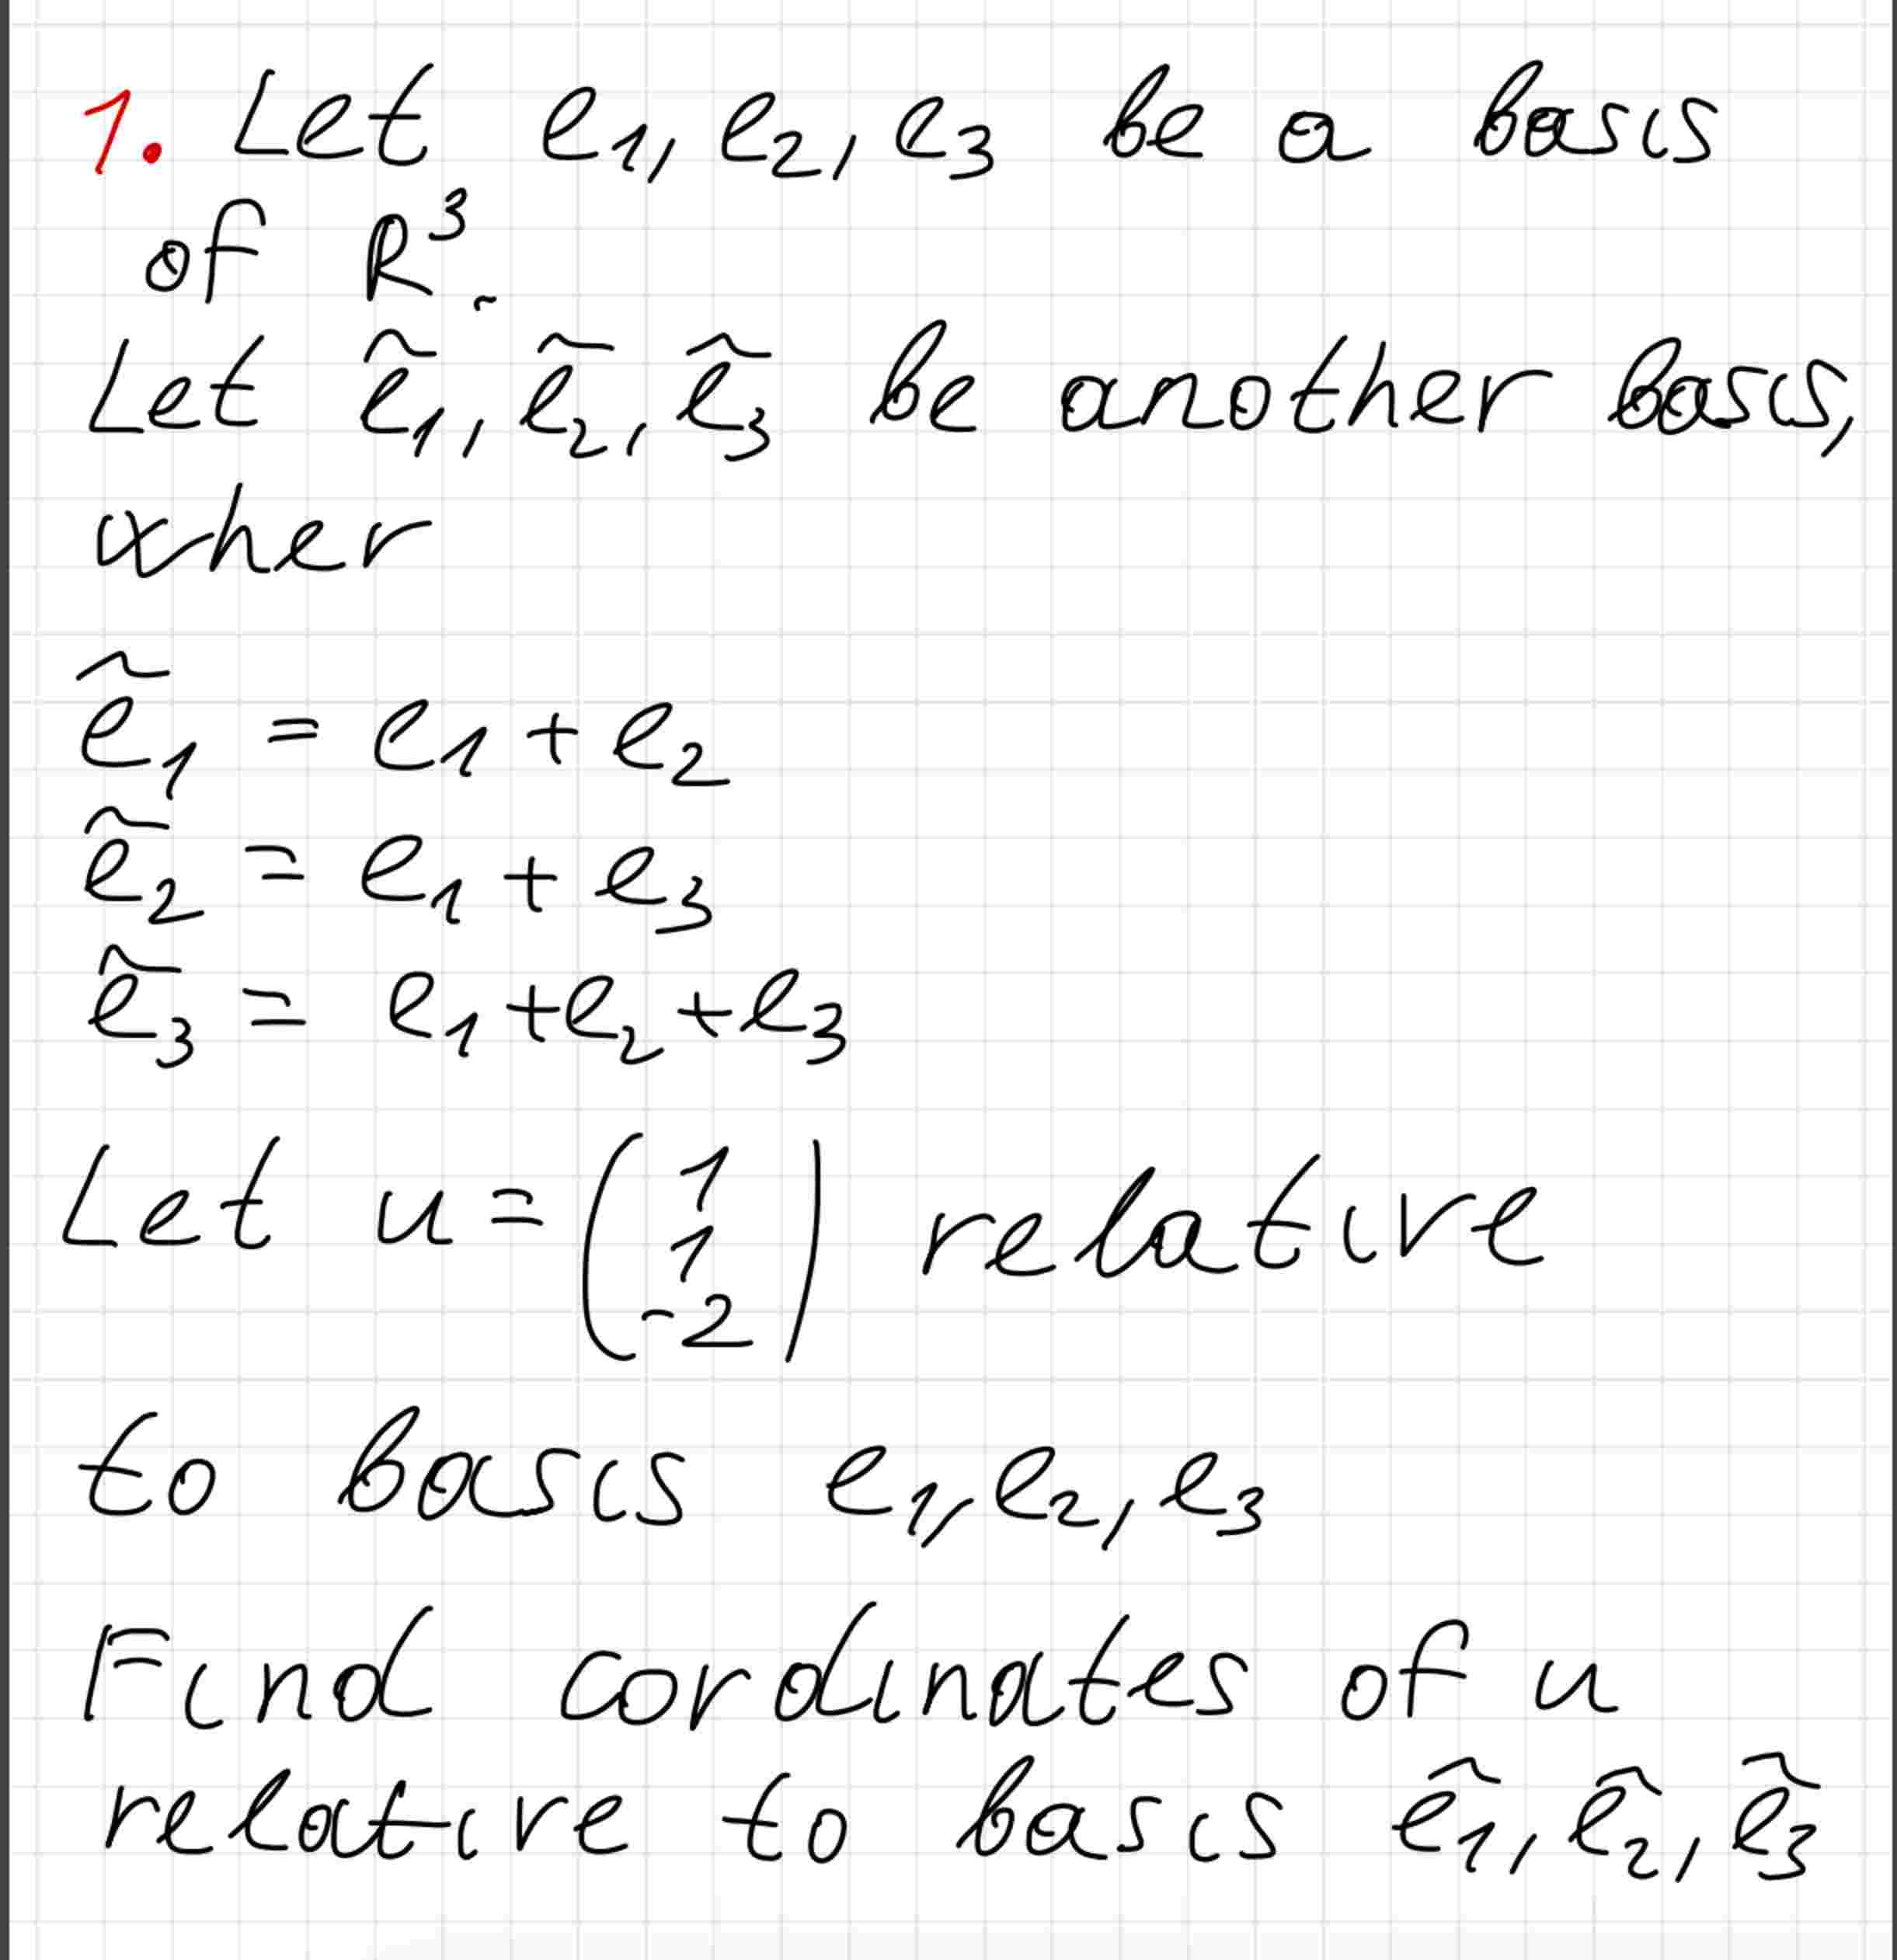 1. Let e₁, e₂, e₃ be a basis
of R³.
Let ẽ₁, ẽ₂, ẽ₃ be another basis,
wher
ẽ₁ = e₁ + e₂
ẽ₂ = e₁ + e₃
ẽ₃ = e₁ + e₂ + e₃
Let u = (1 1 -2) relative
to basis e₁, e₂, e₃
Find cordinates of u
relative to basis ẽ₁, ẽ₂, ẽ₃